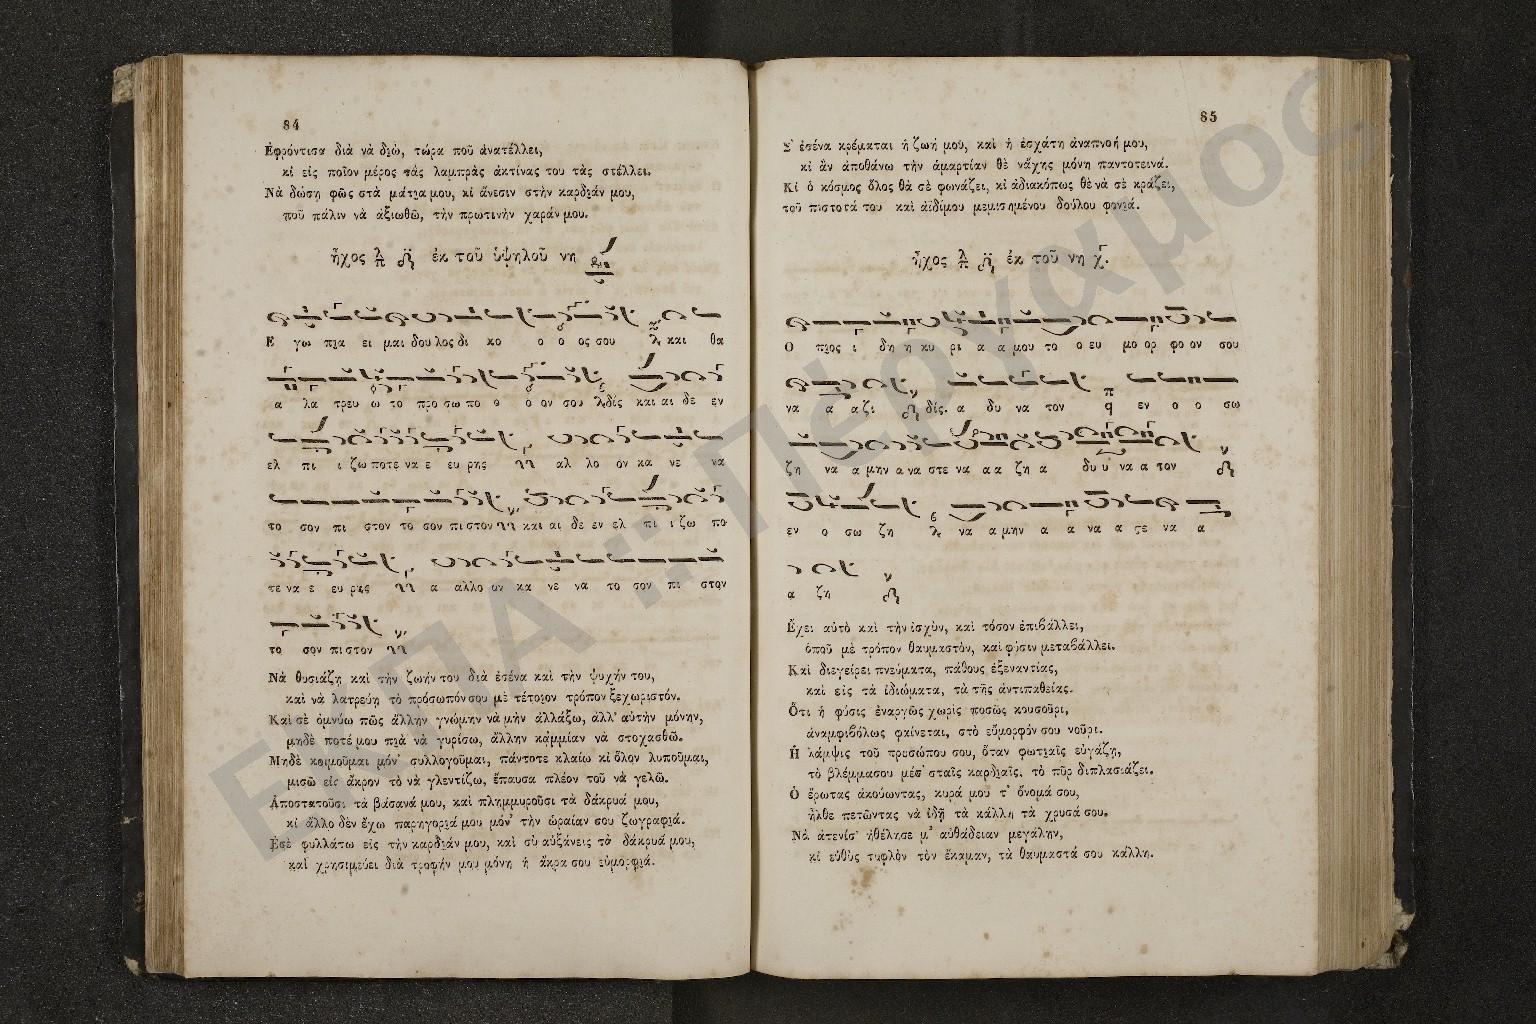 84
Ἐφρόντισα διὰ νὰ διῶ, τώρα ποῦ ἀνατέλλει,
κι εἰς ποῖον μέρος τὰς λαμπρὰς ἀκτίνας του τὰς στέλλει.
Νὰ δώσῃ φῶς στὰ μάτια μου, κι ἄνεσιν στὴν καρδιάν μου,
ποῦ πάλιν νὰ ἀξιωθῶ, τὴν πρωτινὴν χαράν μου.
ἦχος λ π ἐκ τοῦ ὑψηλοῦ νη
Ε γω πια ει μαι δου λος δι κο ο ο ος σου και θα
α λα τρευ ω το προ σω πο ο ο ον σου δίς και αι δε εν
ελ πι ι ζω ποτε να ε ευ ρης αλ λο ον κα νε να
το σον πι στον το σον πι στον και αι δε εν ελ πι ι ζω πο
τε να ε ευ ρης α αλλο ον κα νε να το σον πι στον
το σον πι στον
Νὰ θυσιάζῃ καὶ τὴν ζωήν του διὰ ἐσένα καὶ τὴν ψυχήν του,
καὶ νὰ λατρεύῃ τὸ πρόσωπόν σου μὲ τέτοιον τρόπον ξεχωριστόν.
Καὶ σὲ ὀμνύω πῶς ἄλλην γνώμην νὰ μὴν ἀλλάξω, ἀλλ' αὐτὴν μόνην,
μηδὲ ποτέ μου πιὰ νὰ γυρίσω, ἄλλην καμμίαν νὰ στοχασθῶ.
Μηδὲ κοιμοῦμαι μόν' συλλογοῦμαι, πάντοτε κλαίω κι ὅλον λυποῦμαι,
μισῶ εἰς ἄκρον τὸ νὰ γλεντίζω, ἔπαυσα πλέον τοῦ νὰ γελῶ.
Ἀποστατοῦσι τὰ βάσανά μου, καὶ πλημμυροῦσι τὰ δάκρυά μου,
κι ἄλλο δὲν ἔχω παρηγοριά μου μόν' τὴν ὡραίαν σου ζωγραφιά.
Ἐσὲ φυλλάτω εἰς τὴν καρδιάν μου, καὶ σὺ αὐξάνεις τὰ δάκρυά μου,
καὶ χρησιμεύει διὰ τροφήν μου μόνη ἡ ἄκρα σου εὐμορφιά.
85
Σ' ἐσένα κρέμαται ἡ ζωή μου, καὶ ἡ ἐσχάτη ἀναπνοή μου,
κι ἂν ἀποθάνω τὴν ἁμαρτίαν θὲ νἄχῃς μόνη παντοτεινά.
Κι ὁ κόσμος ὅλος θὰ σὲ φωνάζει, κι ἀδιακόπως θὲ νὰ σὲ κράζει,
τοῦ πιστοτά του καὶ ἀϊδίμου μεμισημένου δούλου φονιά.
ἦχος λ π ἐκ τοῦ νη χ.
Ο πιος ι δη η κυ ρι α α μου το ο ευ μο ορ φο ον σου
να α α ζι δίς. α δυ να τον π q εν ο ο σω
ζη να α μην α να στε να α α ζη α δυ υ να α τον
εν ο σω ζη να α μην α α να α στε να α
α ζη
Ἔχει αὐτὸ καὶ τὴν ἰσχὺν, καὶ τόσον ἐπιβάλλει,
ὁποῦ μὲ τρόπον θαυμαστὸν, καὶ φύσιν μεταβάλλει.
Καὶ διεγείρει πνεύματα, πάθους ἐξεναντίας,
καὶ εἰς τὰ ἰδιώματα, τὰ τῆς ἀντιπαθείας.
Ὅτι ἡ φύσις ἐναργῶς χωρὶς ποσῶς κουσοῦρι,
ἀναμφιβόλως φαίνεται, στὸ εὔμορφόν σου νοῦρι.
Ἡ λάμψις τοῦ προσώπου σου, ὅταν φωτιαῖς εὐγάζῃ,
τὸ βλέμμασου μέσ' σταῖς καρδιαῖς, τὸ πῦρ διπλασιάζει.
Ὁ ἔρωτας ἀκούωντας, κυρά μου τ' ὄνομά σου,
ἦλθε πετῶντας νὰ ἰδῇ τὰ κάλλη τὰ χρυσά σου.
Νὰ ἀτενίσ' ἠθέλησε μ' αὐθάδειαν μεγάλην,
κι εὐθὺς τυφλὸν τὸν ἔκαμαν, τὰ θαυμαστά σου κάλλη.
ΕΚΠΑ :: Πέργαμος